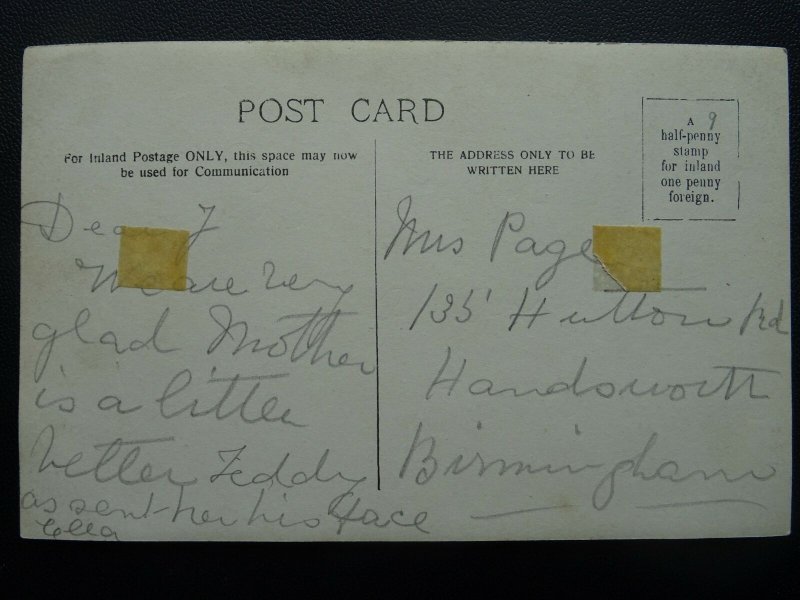 POST CARD
For Inland Postage ONLY, this space may now
be used for Communication
THE ADDRESS ONLY TO BE
WRITTEN HERE
A 9
half-penny
stamp
for inland
one penny
foreign.
Dear J
We are very
glad Mother
is a little
better Teddy
as sent her his face
Ella
Mrs Page
135 Hutton Rd
Handsworth
Birmingham